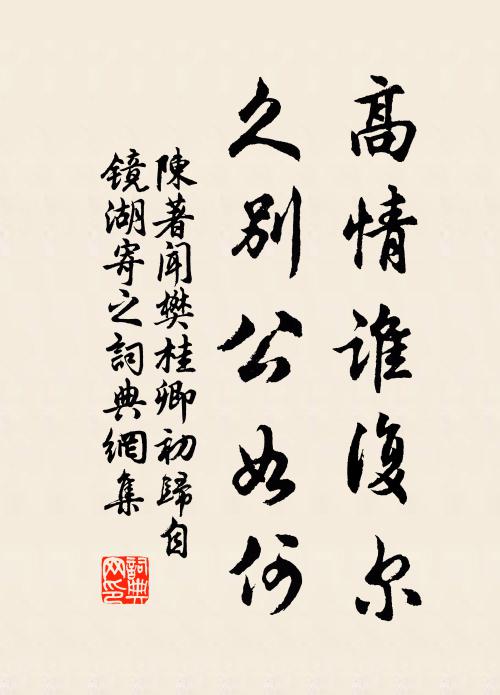 高情谁復尔
久别公如何
陳著闻樊桂卿初歸自
镜湖寄之詞典網集
詞典网印